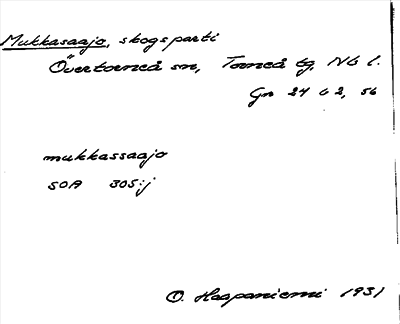 Mukkasaajo, skogsparti
Övertorneå sn, Torneå tg, Nb l.
Gn 24 G2, 56
mukkassaajo
SOA 305:j
O. Haapaniemi 1931